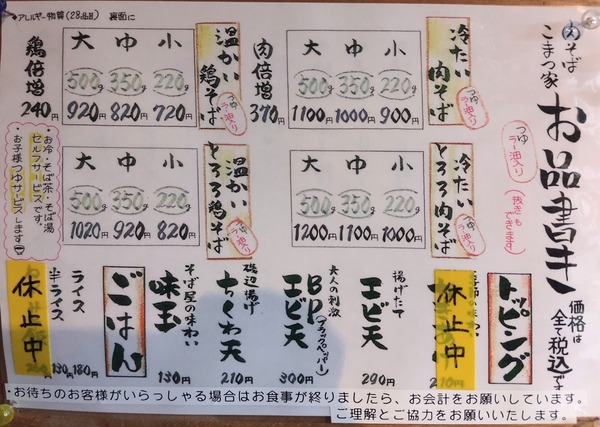 アレルギー物質(28品目) 裏面に
肉そば
こまつ家
お品書き
価格は
全て税込です
つゆ
ラー油入り
(抜きも
できます)
冷たい
肉そば
つゆ
ラー油入り
大 中 小
500g 350g 220g
1100円 1000円 900円
肉倍増
370円
温かい
鶏そば
つゆ
ラー油入り
大 中 小
500g 350g 220g
920円 820円 720円
鶏倍増
240円
冷たい
とろろ肉そば
つゆ
ラー油入り
大 中 小
500g 350g 220g
1200円 1100円 1000円
温かい
とろろ鶏そば
つゆ
ラー油入り
大 中 小
500g 350g 220g
1020円 920円 820円
お冷・そば茶・そば湯
セルフサービスです。
お子様つゆサービスします
トッピング
休止中
210円
揚げたて
エビ天
290円
大人の刺激
BP(ブラックペッパー)
エビ天
300円
磯辺揚げ
ちくわ天
210円
そば屋の味わい
味玉
130円
ごはん
ライス
180円
半ライス
130円
休止中
・お待ちのお客様がいらっしゃる場合はお食事が終りましたら、お会計をお願いしています。
ご理解とご協力をお願いいたします。